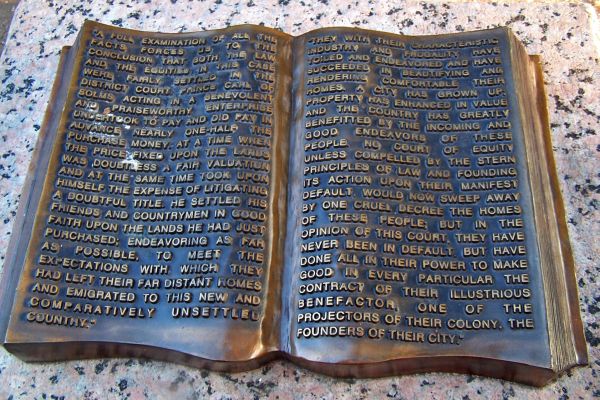 "A FULL EXAMINATION OF ALL THE
FACTS FORCES US TO THE
CONCLUSION THAT BOTH THE LAW
AND THE EQUITIES IN THIS
WERE FAIRLY SETTLED IN THE
DISTRICT COURT. PRINCE CARL OF
SOLMS, ACTING IN A BENEVOLENT
AND PRAISEWORTHY ENTERPRISE
UNDERTOOK TO PAY AND DID PAY IN
ADVANCE NEARLY ONE-HALF THE
PURCHASE MONEY, AT A TIME WHEN
THE PRICE FIXED UPON THE LANDS
WAS DOUBTLESS A FAIR VALUATION
AND AT THE SAME TIME TOOK UPON
HIMSELF THE EXPENSE OF LITIGATING
A DOUBTFUL TITLE. HE SETTLED HIS
FRIENDS AND COUNTRYMEN IN GOOD
FAITH UPON THE LANDS HE HAD JUST
PURCHASED; ENDEAVORING AS FAR
AS POSSIBLE, TO MEET THE
EXPECTATIONS WITH WHICH THEY
HAD LEFT THEIR FAR DISTANT HOMES
AND EMIGRATED TO THIS NEW AND
COMPARATIVELY UNSETTLED
COUNTRY."
"THEY WITH THEIR CHARACTERISTIC
INDUSTRY AND FRUGALITY HAVE
TOILED AND ENDEAVORED AND HAVE
SUCCEEDED IN BEAUTIFYING AND
RENDERING COMFORTABLE THEIR
HOMES. A CITY HAS GROWN UP.
PROPERTY HAS ENHANCED IN VALUE
AND THE COUNTRY HAS GREATLY
BENEFITTED BY THE INCOMING AND
GOOD ENDEAVORS OF THESE
PEOPLE. NO COURT OF EQUITY
UNLESS COMPELLED BY THE STERN
PRINCIPLES OF LAW AND FOUNDING
ITS ACTION UPON THEIR MANIFEST
DEFAULT, WOULD NOW SWEEP AWAY
BY ONE CRUEL DECREE THE HOMES
OF THESE PEOPLE; BUT IN THE
OPINION OF THIS COURT, THEY HAVE
NEVER BEEN IN DEFAULT, BUT HAVE
DONE ALL IN THEIR POWER TO MAKE
GOOD IN EVERY PARTICULAR THE
CONTRACT OF THEIR ILLUSTRIOUS
BENEFACTOR, ONE OF THE
PROJECTORS OF THEIR COLONY, THE
FOUNDERS OF THEIR CITY."